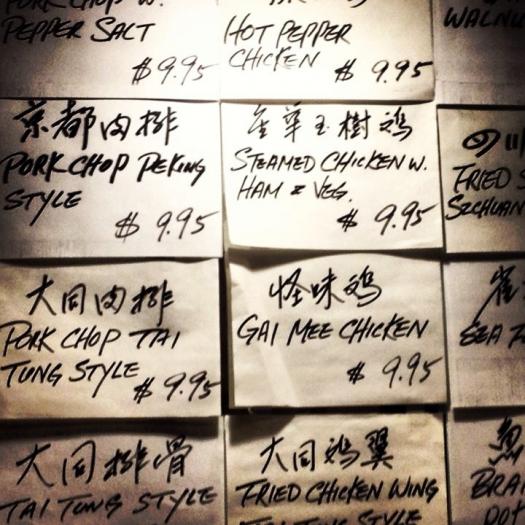 PORK CHOP W.
PEPPER SALT
$9.95
HOT PEPPER
CHICKEN $9.95
京都肉排
PORK CHOP PEKING
STYLE
$9.95
金華玉樹鸡
STEAMED CHICKEN W.
HAM & VEG.
$9.95
FRIED
SZCHUAN
大同肉排
PORK CHOP TAI
TUNG STYLE $9.95
怪味鸡
GAI MEE CHICKEN
$9.95
SEA
大同排骨
TAI TUNG STYLE
大同鸡翼
FRIED CHICKEN WING
TAI TUNG STYLE